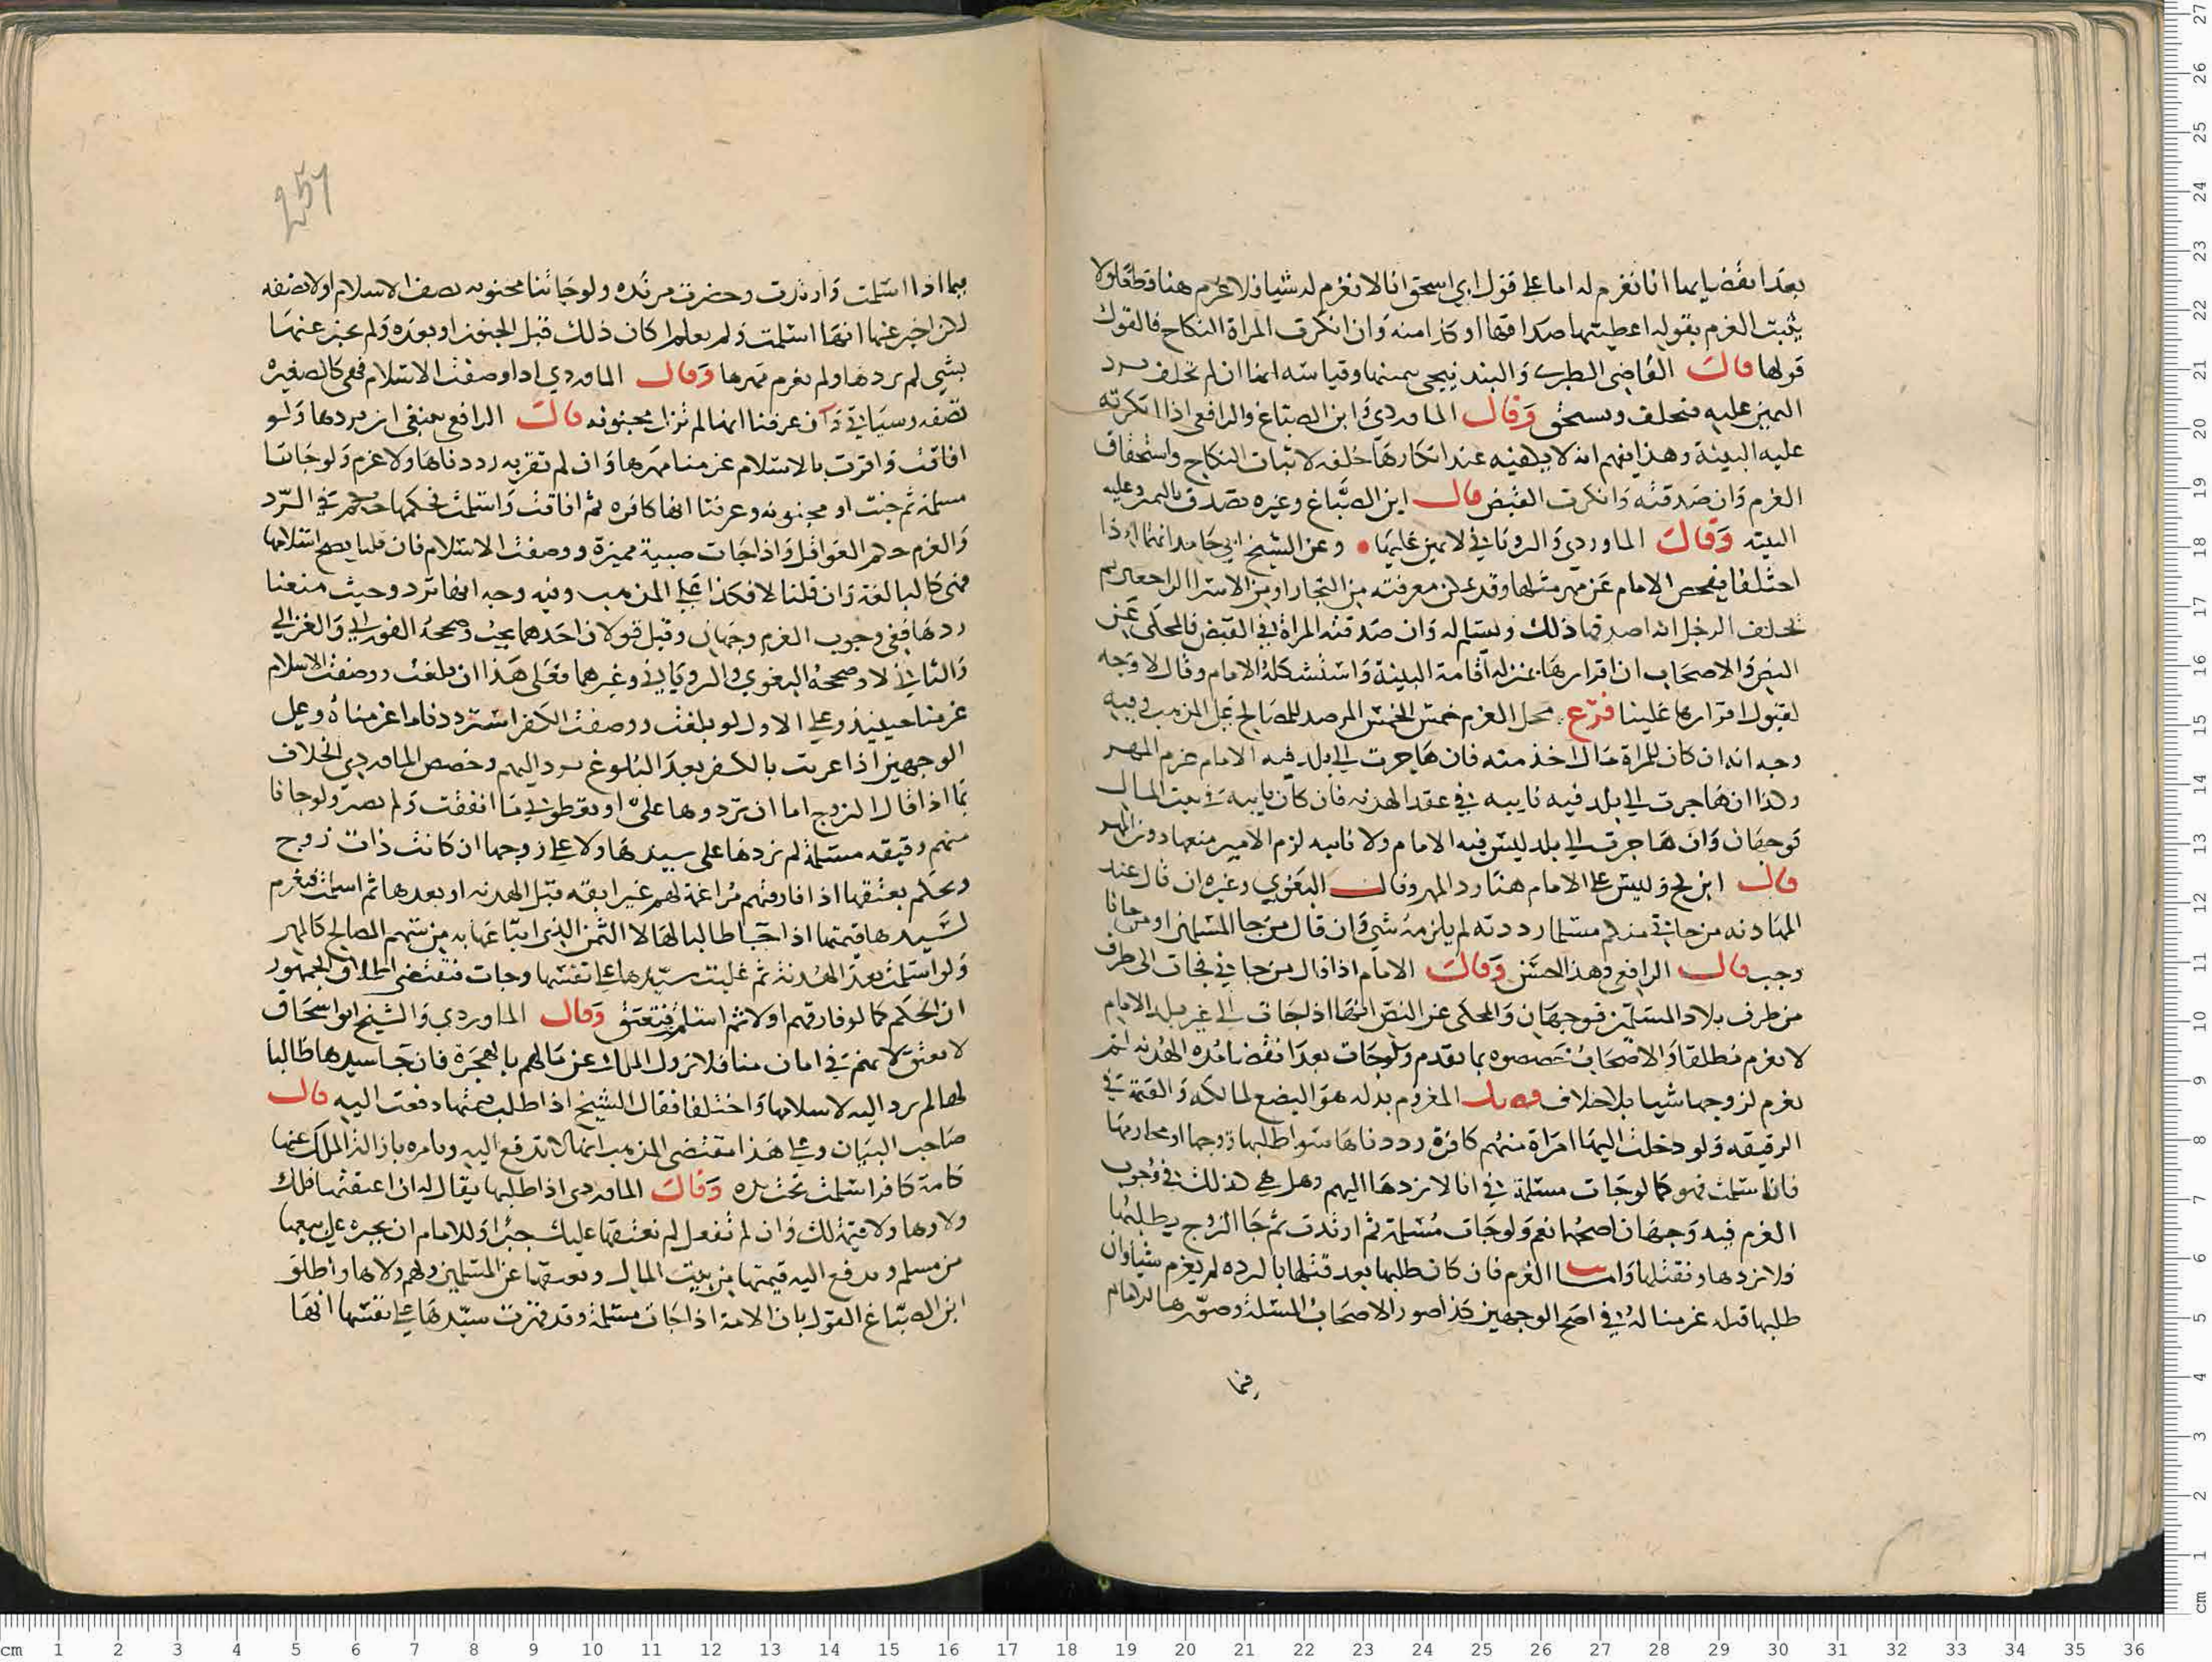 بعد انقضائها انا نغرم له اما على قول ابي اسحق انا لا نغرم له شيا فلا غرم هنا قطعا ولا
يثبت الغرم بقوله اعطيتها صداقها او كذا منه وان انكرت المراة النكاح فالقول
قولها قال القاضي الطبري والبندنيجي بيمينها وقياسه انها ان لم تحلف يرد
اليمين عليه فيحلف ويستحق وقال الماوردي وابن الصباغ والرافعي اذا انكرته
عليه البينة وهذا يفهم انه لا يكفيه عند انكارها حلفه لاثبات النكاح واستحقاق
الغرم وان صدقته وانكرت القبض قال ابن الصباغ وغيره تصدق باليمين وعليه
البينه وقال الماوردي والروياني لا يمين عليها وعن الشيخ ابي حامد انهما اذا
اختلفا يفحص الامام عن مهر مثلها وقد يمكن معرفته من التجار او من الاسرا الراجعين ثم
يحلف الرجل انه اصدقها ذلك ويسلم له وان صدقته المراة في القبض فالمحكي عن
النص والاصحاب ان اقرارها بمنزله اقامة البينة واستشكله الامام وقال لا وجه
لقبول اقرارها علينا فرع محل الغرم خمس الخمس المرصد للمصالح على المذهب وفيه
وجه انه ان كان للمراة مال اخذ منه فان هاجرت الى بلد فيه الامام غرم المهر
وكذا ان هاجرت الى بلد فيه نايبه في عقد الهدنه فان كان نايبه في بيت المال
فوجهان وان هاجرت الى بلد ليس فيه الامام ولا نايبه لزم الامير منعها دون المهر
قال ابن كج وليس على الامام هنا رد المهر وقال البغوي وغيره ان قال عند
المهادنه من جاني منكم مسلما رددته لم يلزمه شي وان قال من جا المسلمين او من جانا
وجب قال الرافعي وهذا الحسن وقال الامام اذا قال من جاني فجات الى طرف
من طرف بلاد المسلمين فوجهان والمحكي عن النص انها اذا جات الى غير بلد الامام
لا نغرم مطلقا والاصحاب خصصوه بما تقدم ولو جات بعد انقضا مده الهدنه لم
نغرم لزوجها شيا بلا خلاف فصل المغروم بدله هو البضع لمالكه والقيمة في
الرقيقه ولو دخلت اليها امراة منهم كافرة رددناها سوا طلبها زوجها او محارمها
فان اسلمت فهو كما لو جات مسلمة في انا لا نردها اليهم وهل هي كذلك في وجوب
الغرم فيه وجهان اصحهما نعم ولو جات مسلمة ثم ارتدت ثم جا الزوج يطلبها
فلا نردها ونقتلها واما الغرم فان كان طلبها بعد قتلها بالرده لم يغرم شيا وان
طلبها قبله غرمنا له في اصح الوجهين كذا صور الاصحاب المسئلة وصورها الامام
فيما
251
فيما اذا اسلمت وارتدت وحضرت مرتده ولو جاتنا مجنونه تصف الاسلام او لا تصفه
لكن اخبر عنها انها اسلمت ولم يعلم اكان ذلك قبل الجنون او بعده ولم يخبر عنها
بشي لم نردها ولم نغرم مهرها وقال الماوردي اذا وصفت الاسلام فهي كالصغيره
تصفه وسياتي وان عرفنا انها لم تزل مجنونه قال الرافعي ينبغي ان نردها ولو
افاقت واقرت بالاسلام غرمنا مهرها وان لم تقر به رددناها ولا غرم ولو جاتنا
مسلمة ثم جنت او مجنونه وعرفنا انها كافره ثم افاقت واسلمت فحكمها حكمهم في الرد
والغرم حكم العواقل واذا جات صبية مميزة ووصفت الاسلام فان قلنا يصح اسلامها
فهي كالبالغة وان قلنا لا فكذا على المذهب وفيه وجه انها ترد وحيث منعنا
ردها ففي وجوب الغرم وجهان وقيل قولان احدهما يجب وصححه الفوراني والغزالي
والثاني لا وصححه البغوي والروياني وغيرهما فعلى هذا ان بلغت ووصفت الاسلام
غرمنا حينيذ وعلى الاول لو بلغت ووصفت الكفر استرددنا ما غرمناه وعلى
الوجهين اذا عربت بالكفر بعد البلوغ ترد اليهم وخصص الماوردي الخلاف
بما اذا قال الزوج اما ان تردوها علي او تعطوني ما انفقت ولم يصبر ولو جانا
منهم رقيقه مسلمة لم نردها على سيدها ولا على زوجها ان كانت ذات زوج
ونحكم بعتقها اذا فارقتهم مراغمة لهم غير ابقه قبل الهدنه او بعدها ثم اسلمت فيغرم
لسيدها قيمتها اذا جا طالبا لها لا الثمن الذي ابتاعها به من سهم المصالح كالمهر
ولو اسلمت بعد الهدنة ثم غلبت سيدها على نفسها وجات فمقتضى اطلاق الجمهور
ان الحكم كما لو فارقتهم اولا ثم اسلمت فتعتق وقال الماوردي والشيخ ابو اسحاق
لا تعتق لانهم في امان منا فلا نزول الملك عن مالهم بالهجرة فان جا سيدها طالبا
لها لم نرد اليه لاسلامها واختلفا فقال الشيخ اذا طلب قيمتها دفعت اليه قال
صاحب البيان وعلى هذا مقتضى المذهب انها لا تدفع اليه ويامره بازالة الملك عنها
كامة كافر اسلمت تحت يده وقال الماوردي اذا طلبها يقال له ان اعتقتها فلك
ولاوها ولا قيمة لك وان لم تفعل لم نعتقها عليك جبرا وللامام ان يجبره على بيعها
من مسلم ويدفع اليه قيمتها من بيت المال ويعتقها عن المسلمين ولهم ولاها واطلق
ابن الصباغ القول بان الامة اذا جات مسلمة وقد قهرت سيدها على نفسها انها